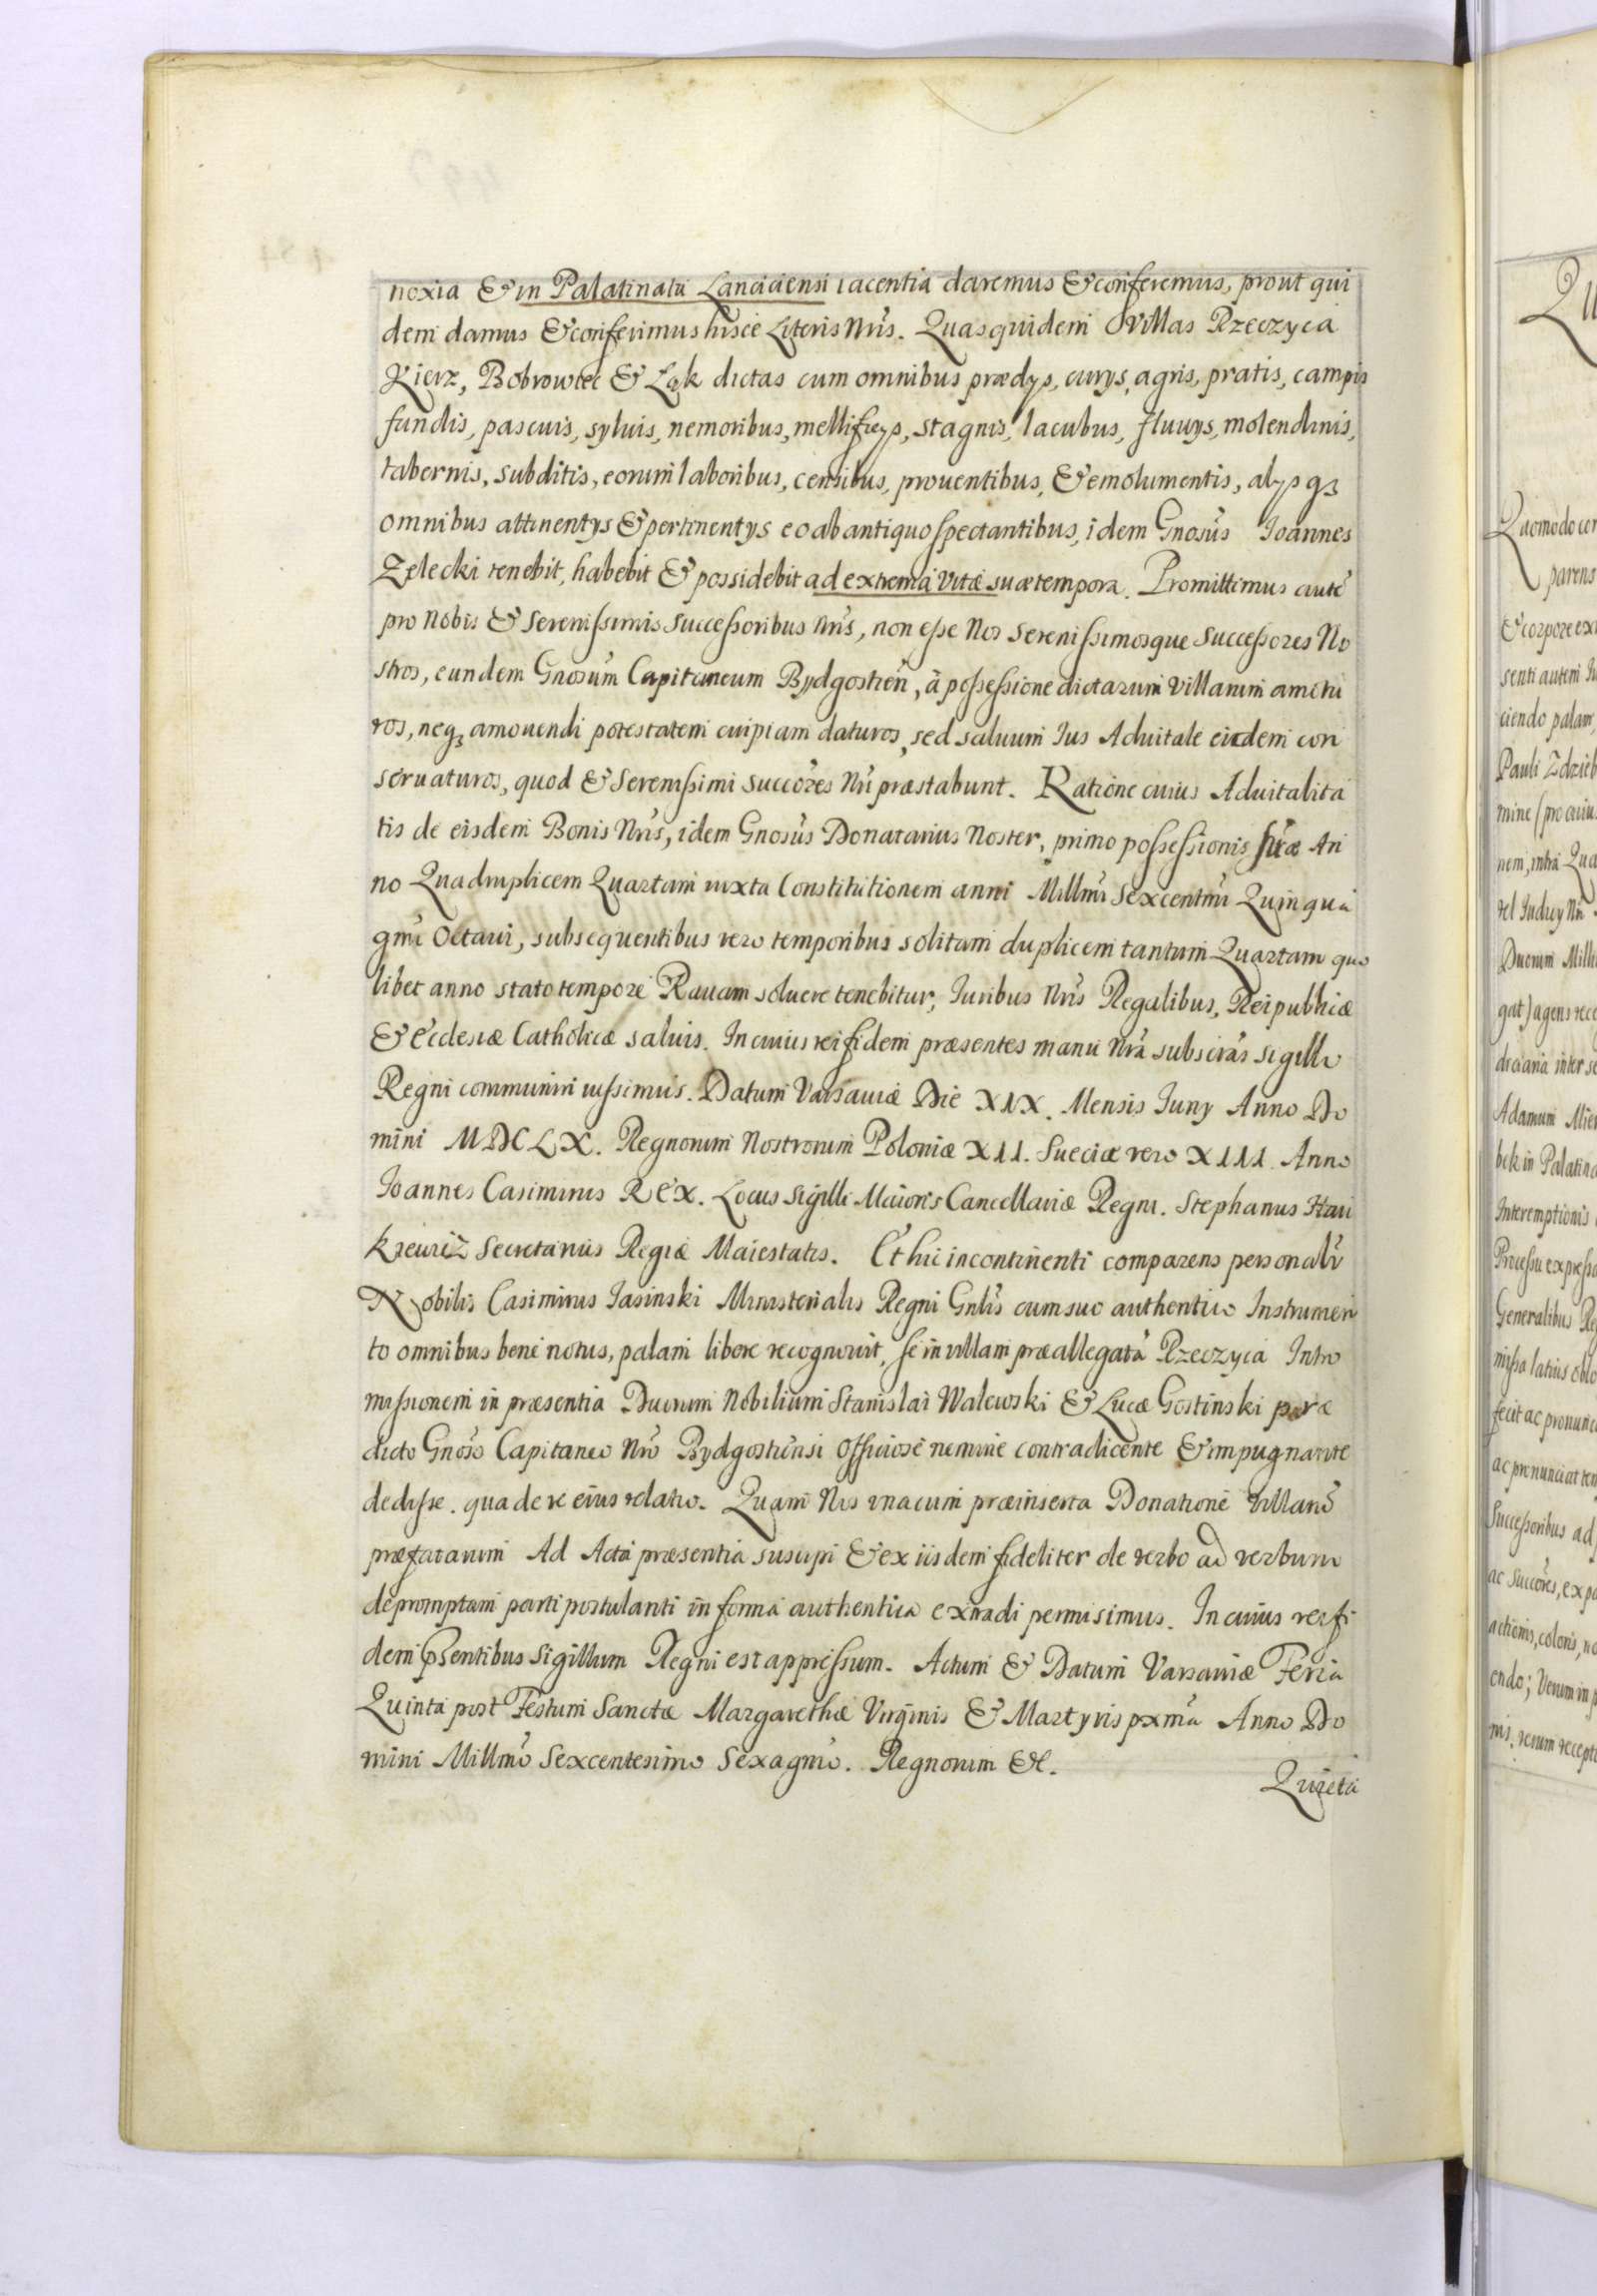 noxia & in Palatinatu Lanciciensi iacentia daremus & conferemus, prout qui
dem damus & conferimus hisce Literis Nris. Quasquidem Villas Rzeczyca
Kierz, Bobrowiec & Ląk dictas cum omnibus prædys, curys, agris, pratis, campis
fundis, pascuis, syluis, nemoribus, mellificys, stagnis, lacubus, fluuys, molendinis,
tabernis, subditis, eorum laboribus, censibus, prouentibus, & emolumentis, alysqꝫ
omnibus attinentys & pertinentys eo ab antiquo spectantibus, idem Gnosus Joannes
Zelecki tenebit, habebit & possidebit ad extrema vitæ suæ tempora. Promittimus autē
pro Nobis & Serenissimis Successoribus Nris, non esse Nos Serenissimosque Successores No
stros, eundem Gnosum Capitaneum Bydgostien, à possessione dictarum Villarum amotu
ros, neqꝫ amouendi potestatem cuipiam daturos, sed saluum Ius Aduitale eidem con
seruaturos, quod & Serenissimi Succores Nri præstabunt. Ratione cuius Aduitalita
tis de eisdem Bonis Nris, idem Gnosus Donatarius Noster, primo possessionis suæ An
no Quadruplicem Quartam iuxta Constitutionem anni Millmi Sexcentmi Quinqua
gmi Octaui, subsequentibus vero temporibus solitam duplicem tantum Quartam quo
libet anno stato tempore Rauam soluere tenebitur, Iuribus Nris Regalibus, Reipublicæ
& Ecclesiæ Catholicæ saluis. In cuius rei fidem præsentes manu Nra subscras sigillo
Regni communiri iussimus. Datum Varsauiæ Die XIX. Mensis Iuny Anno Do
mini MDCLX. Regnorum Nostrorum Poloniæ XII. Sueciæ vero XIII. Anno
Ioannes Casimirus REX. Locus Sigilli Maioris Cancellariæ Regni. Stephanus Han
kieuicz Secretarius Regiæ Maiestatis. Et hic incontinenti comparens personalr
Nobilis Casimirus Jasinski Ministerialis Regni Gnlis cum suo authentico Instrumen
to omnibus bene notus, palam libere recognouit, se in villam præallegatā Rzeczyca Intro
missionem in præsentia Duorum Nobilium Stanislai Walewski & Lucæ Gostinski præ
dicto Gnoso Capitaneo Nro Bydgostiensi officiose nemine contradicente & impugnante
dedisse. qua de re eius relatio. Quam Nos unacum præinserta Donatione Villarū
præfatarum Ad Acta præsentia suscipi & ex iisdem fideliter de verbo ad verbum
depromptam parti postulanti in forma authentica extradi permisimus. In cuius rei fi
dem psentibus Sigillum Regni est appressum. Actum & Datum Varsauiæ Feria
Quinta post Festum Sanctæ Margarethæ Virginis & Martyris pxma Anno Do
mini Millmo Sexcentesimo Sexagmo. Regnorum &c.
Quieta
Quomodo
parens
& corpore
senti autem
ciendo palam,
Pauli
mine
nem, intra
Duorum
gat) agens
Adamum
bek in
Interemptionis
Generalibus
missa latius
fecit ac
Successoribus ad
ac Succores,
actionis, coloris,
endo; Verum in